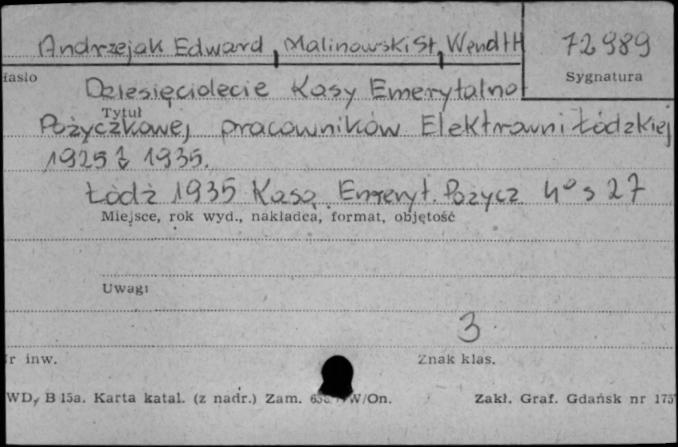 Andrzejak Edward, Malinowski St, Wendt H
72989
Hasło
Sygnatura
Dziesięciolecie Kasy Emerytalno
Tytuł
Pożyczkowej pracowników Elektrowni Łódzkiej
1925 1935.
Łódź 1935 Kasa Emeryt. Pożycz 4° s 27
Miejsce, rok wyd., nakładca, format, objętość
Uwagi
3
r inw.
Znak klas.
WD, B 15a. Karta katal. (z nadr.) Zam. W/On.
Zakł. Graf. Gdańsk nr 175